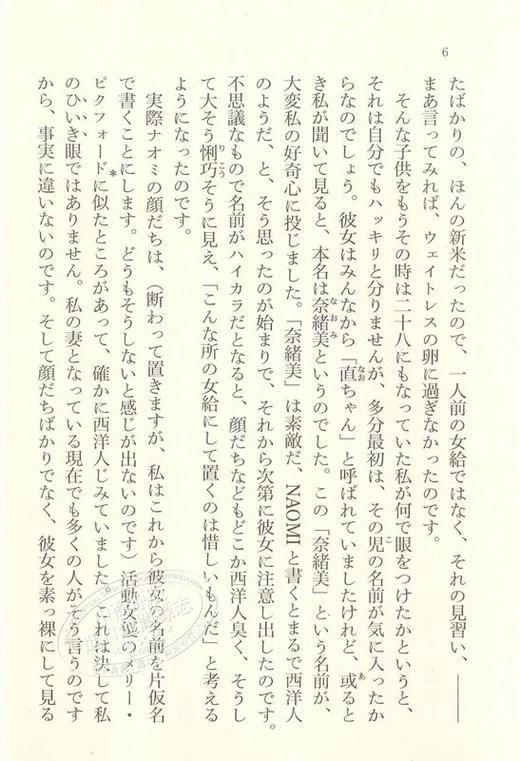 6
たばかりの、ほんの新米だったので、一人前の女給ではなく、それの見習い、――
まあ言ってみれば、ウェイトレスの卵に過ぎなかったのです。
そんな子供をもうその時は二十八にもなっていた私が何で眼をつけたかというと、
それは自分でもハッキリと分りませんが、多分最初は、その児の名前が気に入ったか
らなのでしょう。彼女はみんなから「直ちゃん」と呼ばれていましたけれど、或ると
き私が聞いて見ると、本名は奈緒美というのでした。この「奈緒美」という名前が、
大変私の好奇心に投じました。「奈緒美」は素敵だ、NAOMIと書くとまるで西洋人
のようだ、と、そう思ったのが始まりで、それから次第に彼女に注意し出したのです。
不思議なもので名前がハイカラだとなると、顔だちなどもどこか西洋人臭く、そうし
て大そう悧巧そうに見え、「こんな所の女給にして置くのは惜しいもんだ」と考える
ようになったのです。
実際ナオミの顔だちは、(断わって置きますが、私はこれから彼女の名前を片仮名
で書くことにします。どうもそうしないと感じが出ないのです)活動女優のメリー・
ピクフォードに似たところがあって、確かに西洋人じみていました。これは決して私
のひいき眼ではありません。私の妻となっている現在でも多くの人がそう言うのです
から、事実に違いないのです。そして顔だちばかりでなく、彼女を素っ裸にして見る